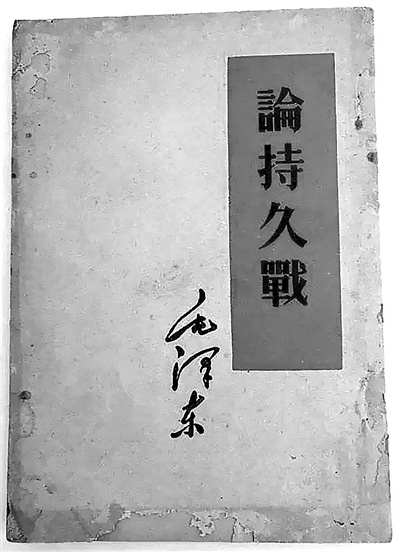 論持久戰
毛泽东